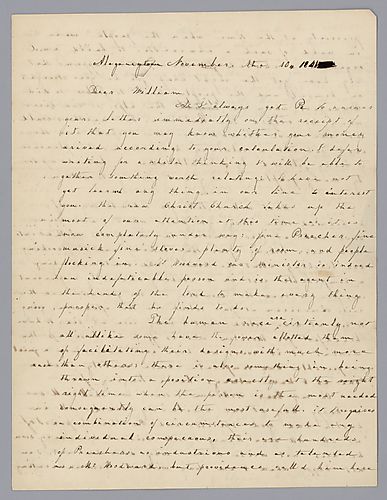 November the 10
Dear William
As I always get Pa to answer
your letters immediately on the receipt of
it that you may know whether your money
arived according to your calculation I defer
writing for a while thinking I will be able to
gather something worth relating I have not
yet learnt any thing in our line to interest
you the new Christ Church takes up the
most of our attention at this time as it is
now completely under way fine Preacher, fine
musick fine Stoves plenty of room, and people
flocking in Mr Woodward our minister is indeed
an indefaticable person and is the agent in
the hands of the lord to make every thing
prosper that he finds to do.
The human race certainly not
all alike some have the power allotted them
of facilitating their designs with much more
ease than others there is also something in being
thrown into a position exactly in the right
time when the person is the most needed
consequently can be the most usefull it requires
a combination of circumstances to make any
individual conspicuous, there are hundreds
of Preachers as industrious and as talented
as Mr Woodward but providence would have